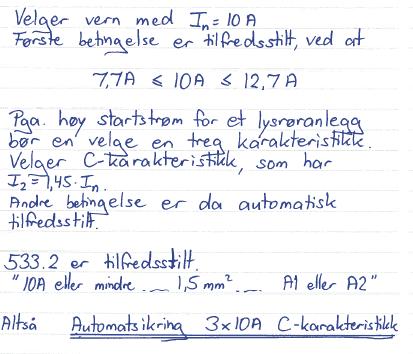 Velger vern med In = 10 A
Første betingelse er tilfredsstilt, ved at
7,7A ≤ 10A ≤ 12,7A
Pga. høy startstrøm for et lysrøranlegg
bør en velge en treg karakteristikk.
Velger C-karakteristikk, som har
I2 = 1,45 · In.
Andre betingelse er da automatisk
tilfredsstilt.
533.2 er tilfredsstilt.
"10A eller mindre ... 1,5 mm² ... A1 eller A2"
Altså Automatsikring 3x10A C-karakteristikk